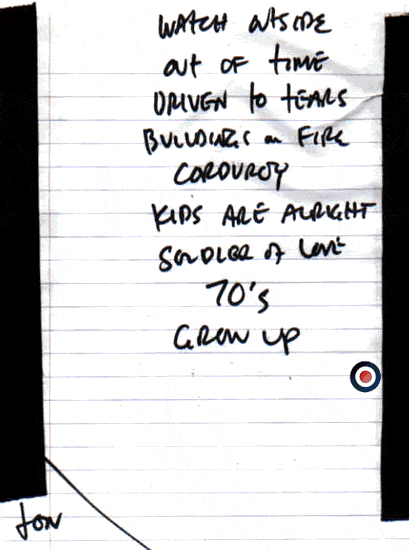 WATCH OUTSIDE
OUT OF TIME
DRIVEN TO TEARS
BUILDINGS on FIRE
CORDUROY
KIDS ARE ALRIGHT
SOLDIER of LOVE
70's
GROW UP
JON